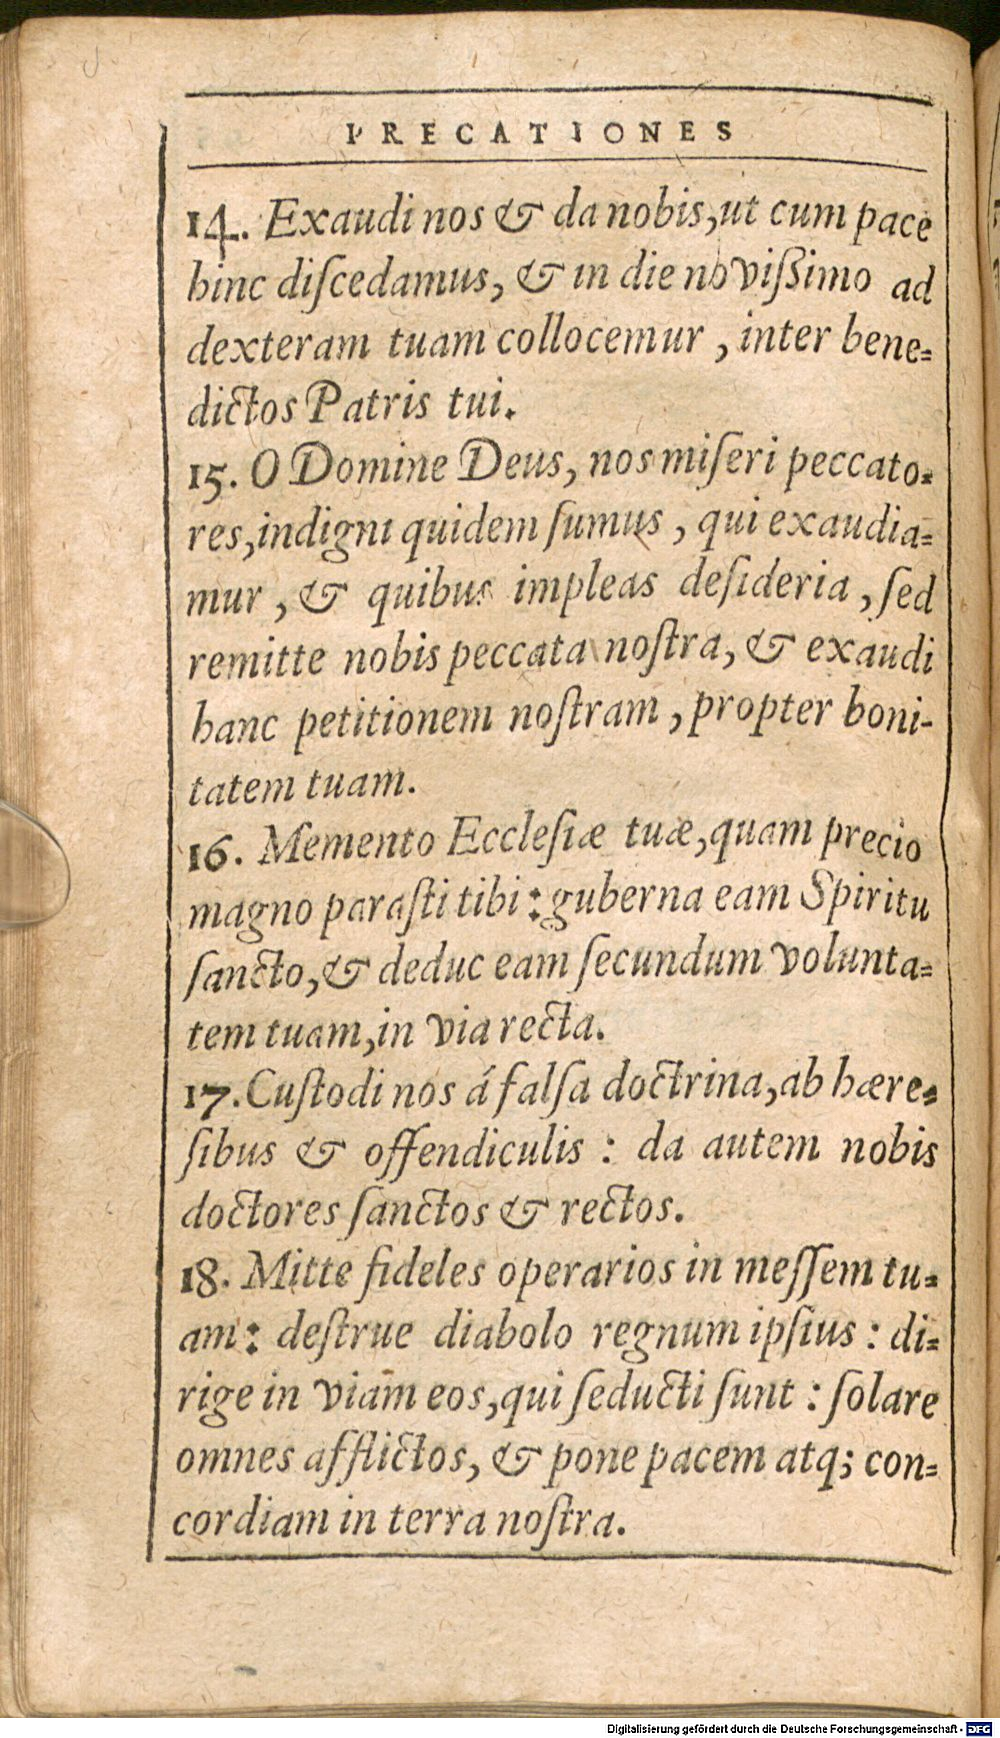 PRECATIONES
14. Exaudi nos & da nobis, ut cum pace
hinc diſcedamus, & in die noviſsimo ad
dexteram tuam collocemur, inter bene=
dictos Patris tui.
15. O Domine Deus, nos miſeri peccato=
res, indigni quidem ſumus, qui exaudia=
mur, & quibus impleas deſideria, ſed
remitte nobis peccata noſtra, & exaudi
hanc petitionem noſtram, propter boni-
tatem tuam.
16. Memento Eccleſiæ tuæ, quam precio
magno paraſti tibi: guberna eam Spiritu
ſancto, & deduc eam ſecundum volunta=
tem tuam, in via recta.
17. Cuſtodi nos á falſa doctrina, ab hære=
ſibus & offendiculis: da autem nobis
doctores ſanctos & rectos.
18. Mitte fideles operarios in meſſem tu=
am: deſtrue diabolo regnum ipſius: di=
rige in viam eos, qui ſeducti ſunt: ſolare
omnes afflictos, & pone pacem atq; con=
cordiam in terra noſtra.
Digitalisierung gefördert durch die Deutsche Forschungsgemeinschaft - DFG